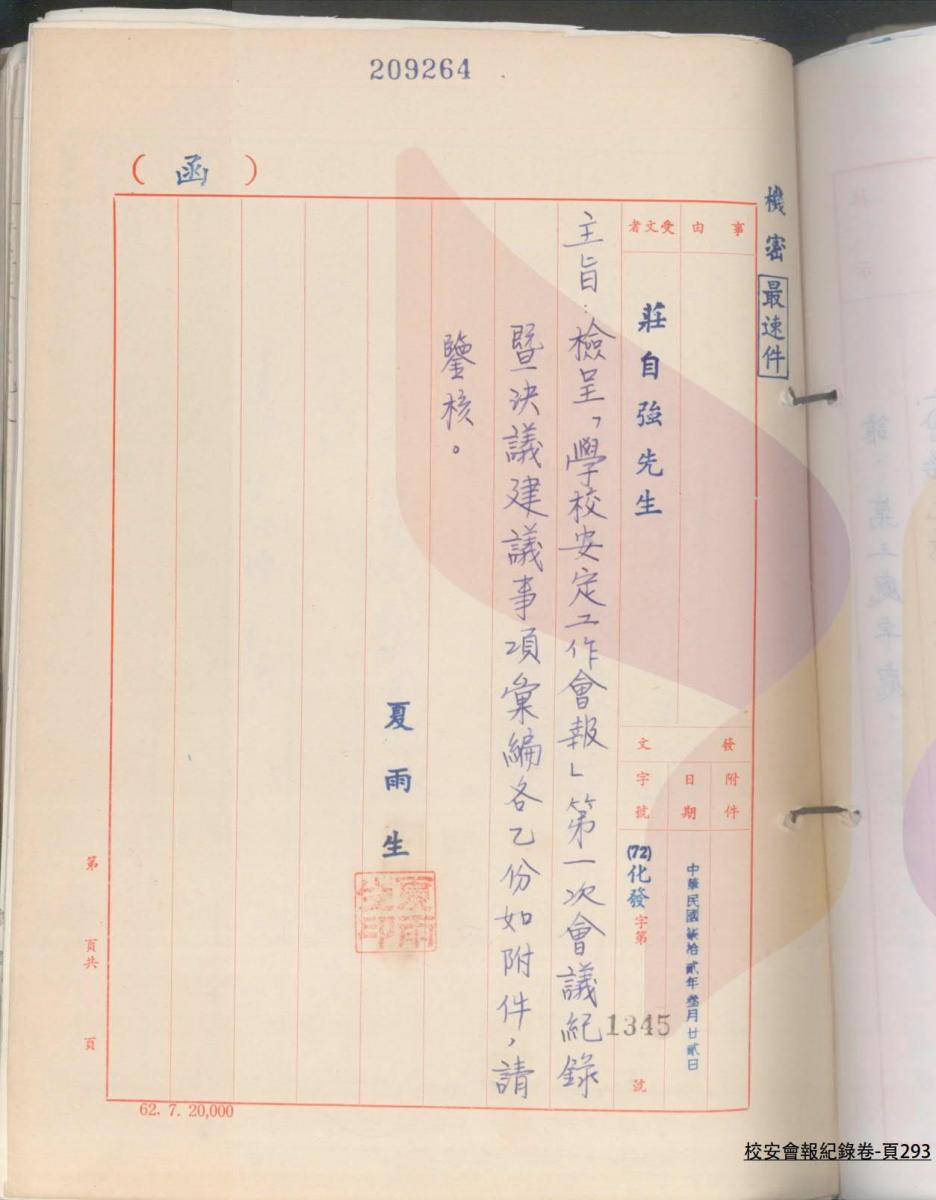 209264
(函)
機密 最速件
事由
受文者
莊自強先生
發文
附件
日期
中華民國柒拾貳年叁月廿貳日
字號
(72)化發字第1345號
主旨：檢呈「學校安定工作會報」第一次會議紀錄
暨決議建議事項彙編各乙份如附件，請
鑒核。
夏雨生
夏雨生印
第 頁共 頁
62. 7. 20,000
校安會報紀錄卷-頁293